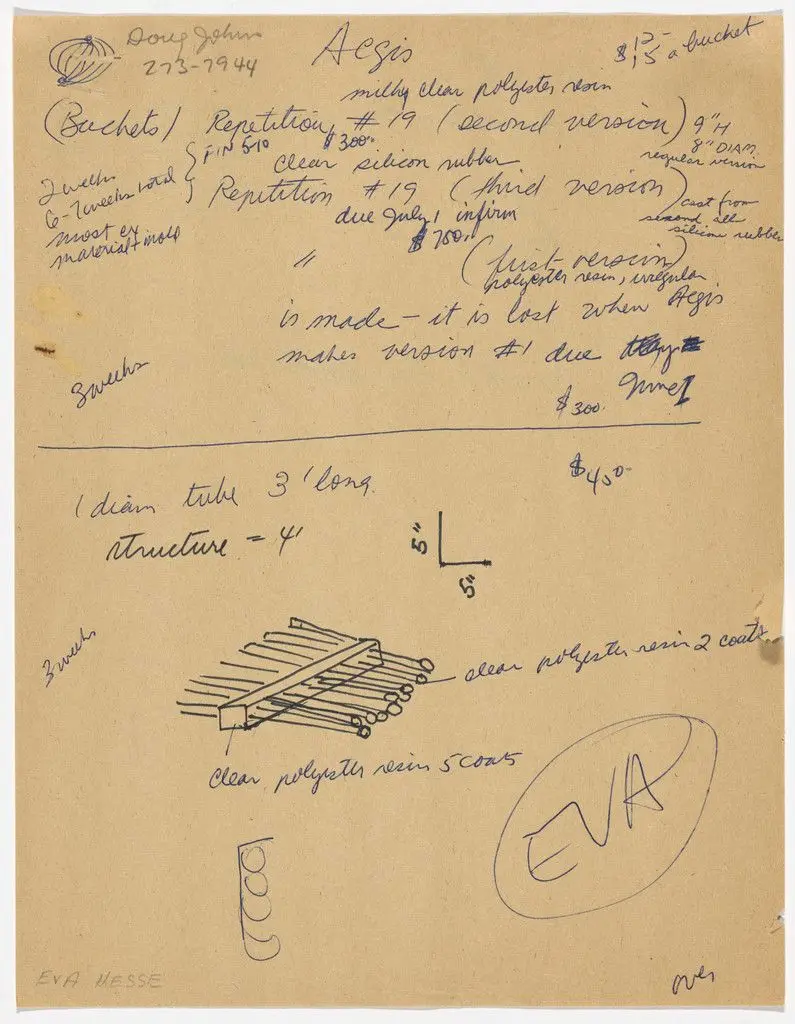 Doug Johns
273-7944
Aegis
$ 12-
$ 15 a bucket
milky clear polyester resin
(Buckets) Repetition, # 19 (second version) 9"H
8" DIAM.
regular version
FIN 5-10
$300-
clear silicon rubber
2 weeks
6-7 weeks total
most ex
material + mold
Repetition #19 (third version)
cast from
second all
silicone rubber
due July 1 infirm
$ 750.
" (first version)
polyester resin, irregular
is made - it is lost when Aegis
makes version #1 due
June 1
3 weeks
$ 300.
$450-
1 diam tube 3' long.
structure = 4'
5"
5"
3 weeks
clear polyester resin 2 coats
clear polyester resin 5 coats
EVA
EVA HESSE
over